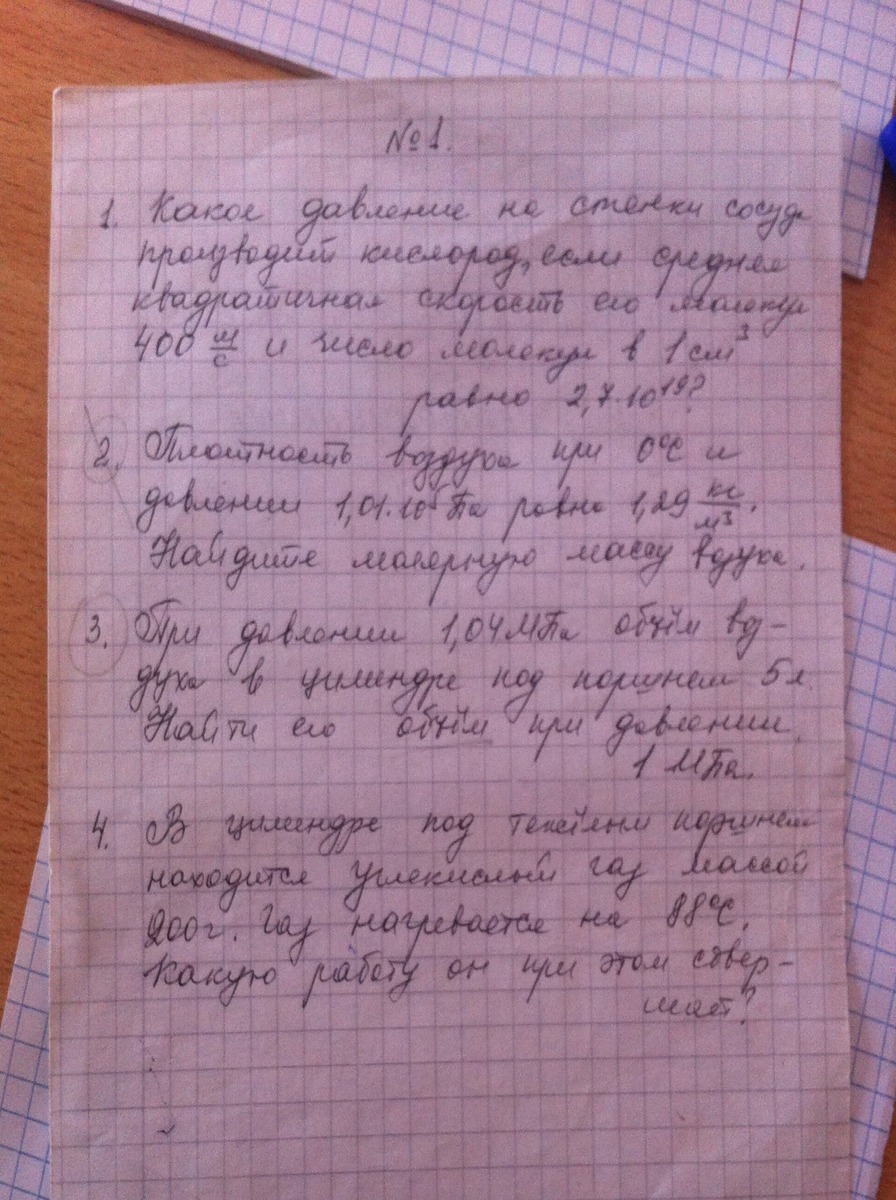 №1.
1. Какое давление на стенки сосуда
производит кислород, если средняя
квадратичная скорость его молекул
400 м/с и число молекул в 1 см³
равно 2,7·10¹⁹?
2. Плотность воздуха при 0°С и
давлении 1,01·10⁵ Па равна 1,29 кг/м³.
Найдите молярную массу воздуха.
3. При давлении 1,04 МПа объём воз-
духа в цилиндре под поршнем 5 л.
Найти его объём при давлении
1 МПа.
4. В цилиндре под тяжёлым поршнем
находится углекислый газ массой
200 г. Газ нагревается на 88°С.
Какую работу он при этом совер-
шает?